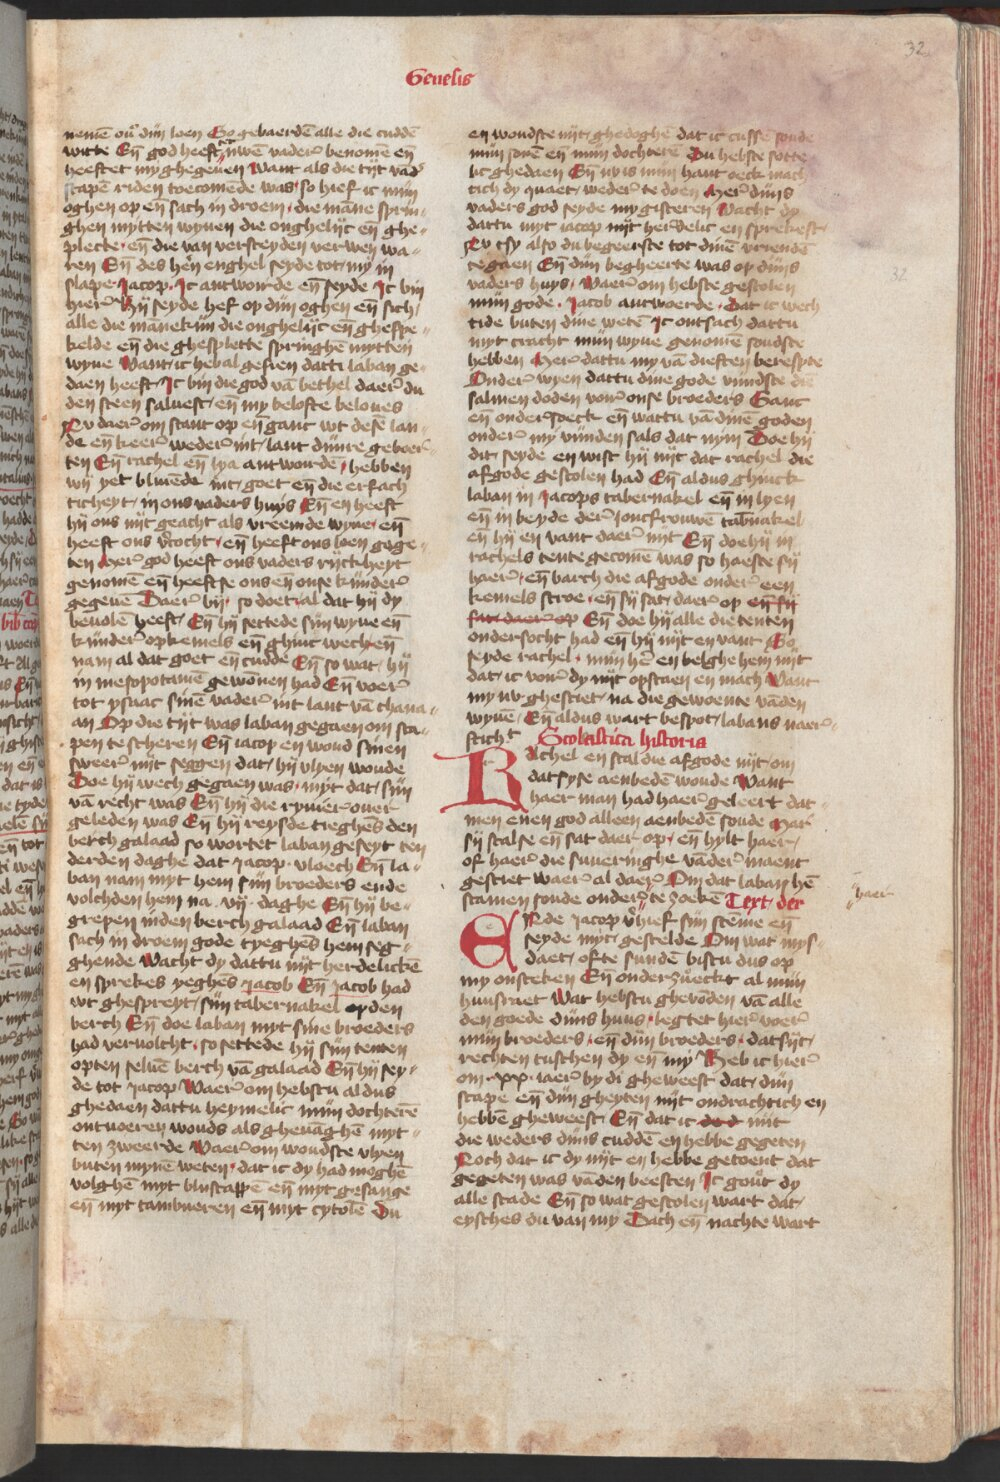 32
Genesis
nemē ouͬ dijn loen So gebaerdē alle die cuddē
witte Eñ god heeft nwē vader benomē eñ
heeftet my ghegeuen Want als die tijt vād
scapē riden toecomēde was so hief ic mijn
oghen op eñ sach in droem die māne sprin-
ghen mytten wyuen die onghelijc eñ ghe-
plecte eñ die van versceyden verwen wa-
ren Eñ des hērn enghel seyde tot my in
slape Jacop Ic antworde eñ seyde Ic bin
hier Hij seyde hef op dijn oghen eñ sich
alle die mānekijn die onghelijc eñ ghespe-
kelde eñ die ghesplette springhē mytten
wyue Want ic heb al gesien datti laban ge-
daen heeft Ic bin die god vā bethel daer du
den steen salvest eñ my belofte beloues
Nv daer om stant op eñ gant wt desē lan-
de eñ keer weder int lant dijnre geboer-
ten Eñ rachel eñ lya antwordē hebben
wij yet bliuēde int goet eñ die erfach
ticheyt in ons vaders huys Eñ en heeft
hij ons nijt geacht als vreemde wyue eñ
heeft ons v̄cocht eñ heeft ons loen gege-
ten Mer god heeft ons vaders rijckheyt
genomē eñ heeftse ons eñ onse kijnder
gegeuē Daer bij so doet al dat hij dy
beuolē heeft Eñ hij settede sijn wyue eñ
kijnder op kemels eñ ghinc wech eñ
nam al dat goet eñ cudde Eñ so wat hij
in mesopotamē gewōnen had Eñ voer
tot ysaac sinē vader int lant vā chana-
an Op die tijt was laban gegaen om sca-
pen te scheren Eñ iacop en woud sinen
sweer nijt seggen dat hij vlyen woude
Doe hij wech gegaen was myt dat sijn
vā recht was Eñ hij die ryuier ouer
geleden was Eñ hij reysde tieghēs den
berch galaad so wortet laban geseyt ten
derden daghe dat Jacop vloech Eñ la-
ban nam myt hem sijn broeders ende
volchden hem na vij daghe Eñ hij be-
grepen inden berch galaad Eñ laban
sach in droem gode tyeghēs hem seg-
ghende Wacht dy dattu nijt herdelickē
en sprekes yeghēs Jacob Eñ Jacob had
wt ghespreyt sijn tabernakel op den
berch Eñ doe laban myt sine broeders
had veruolcht so settede hij sijn tenten
opten seluē berch vā galaad Eñ hij sey-
de tot Jacop Waer om hebstu aldus
ghedaen dattu heymelic mijn dochterē
ontuoeren wouds als gheuāghē myt-
ten zweerde Waer om woudste vlyen
buten mynē weten dat ic dy had moghē
volghē myt blijscappē eñ myt gesange
eñ myt tambueren eñ myt cytolē Du
en woudste nijt ghedoghē dat ic cusse soude
mijn sonē eñ mijn dochterē Du hebste sotte
lic ghedaen Eñ nv is mijn hant oeck mach
tich dy quaet weder te doen Mer dijns
vaders god seyde my gisteren Wacht dy
dattu myt iacop nijt herdelic en sprekest
Nv tsy also du begeerste tot dinē vrienden
te gaen Eñ dijn begheerte was op dijns
vaders huys Waer om hebste gestolen
mijn gode Jacob antwoerde Dat ic wech
tide buten dine wetē Ic ontsach dattu
myt cracht mijn wyue genomē soudste
hebben Mer dattu my vā dieften berespte
Onder wyen dattu dine gode vindste die
salmen doden voer onse broeders Gant
eñ onder soeck eñ wattu vā dinē goden
onder my vijnden sals dat nym Doe hij
dit seyde en wist hij nijt dat rachel die
afgode gestolen had Eñ aldus ghinck
laban in Jacops tabernakel eñ in lyen
eñ in beyde der joncfrouwē tab̄nakel
eñ hij en vant daer nijt Eñ doe hij in
rachels tente gecomē was so haeste sij
haer eñ barch die afgode onder een
kemels stroe eñ sij sat daer op eñ sij
sat daer op Eñ doe hij alle die tenten
ondersocht had eñ hij nijt en vant So
seyde rachel mijn hēr en belghe hem nijt
dat ic voer dy nijt opstaen en mach Want
my nv ghesciet na die gewoente vā den
wyuē Eñ aldus wart bespot labans naer-
sticht Scolastica historia
Rachel en stal die afgode nijt om
dat syse aenbedē woude Want
haer man had haer geleert dat-
men enen god alleen aenbedē soude Mar
sij stalse eñ sat daer op eñ hylt haer
of haer die suueringhe vā der maent
gesciet waer al daer Om dat laban hē
scamen soude onder te zoekē Text der
haer
Ende Jacop v̄hief sijn stēme eñ
seyde myt gestelde Om wat mys-
daet ofte sundē bistu dus op
my onsteken Eñ onderzueckt al mijn
huusraet Wat hebstu gheuōden vā alle
den goede dijns huus legtet hier voer
mijn broeders eñ dijn broeders dat sijt
rechten tusschen dy eñ my Heb ic hier
om xx iaer by di gheweest dat dijn
scape eñ dijn gheyten nijt ondrachtich en
hebbē gheweest Eñ dat ic ded nijt
die weders dijns cuddē en hebbe gegeten
Noch dat ic dy nijt en hebbe getoent dat
gegeten was vā den beesten Ic gout dy
alle scade Eñ so wat gestolen wart dat
eysches du van my Dach eñ nachte wart
32